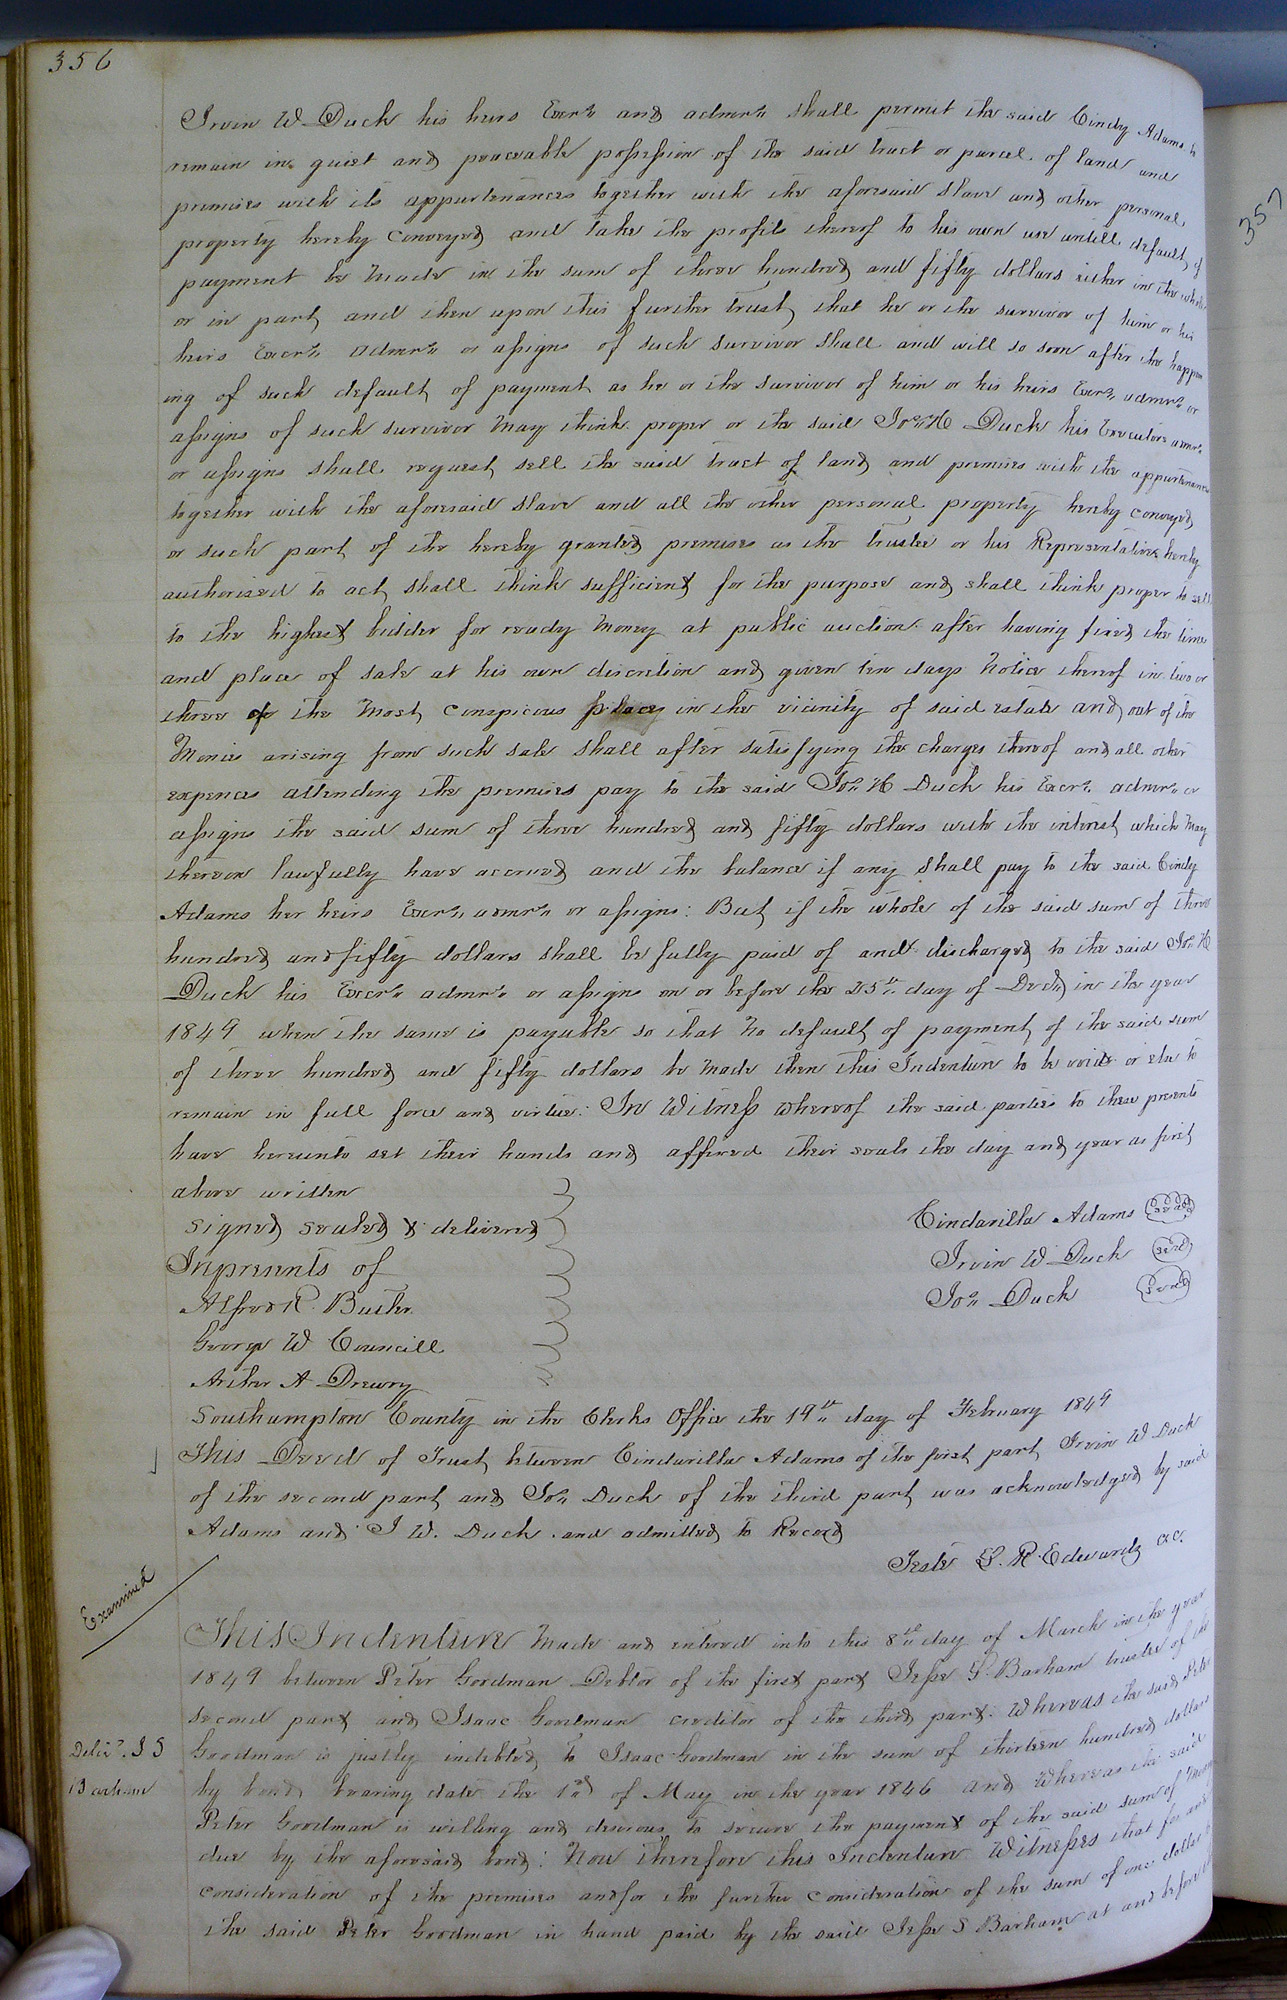 356
Irvin W Duck his heirs Exors and admrs shall permit the said Cindy Adams to
remain in quiet and peaceable possession of the said tract or parcel of land and
premises with its appurtenances together with the aforesaid slave and other personal
property hereby conveyed and take the profits thereof to his own use untill default of
payment be made in the sum of three hundred and fifty dollars either in the whole
or in part and then upon this further trust that he or the survivor of him or his
heirs Exors admrs or assigns of such survivor shall and will so soon after the happen
ing of such default of payment as he or the survivor of him or his heirs Exors admrs or
assigns of such survivor may think proper or the said Jos H Duck his Executors admrs
or assigns shall request sell the said tract of land and premises with the appurtenances
together with the aforesaid slave and all the other personal property hereby conveyed
or such part of the hereby granted premises as the trustee or his Representatives hereby
authorized to act shall think sufficient for the purpose and shall think proper to sell
to the highest bidder for ready money at public auction after having fixed the time
and place of sale at his own discretion and given ten days notice thereof in two or
three of the most conspicious places in the vicinity of said estate and out of the
Monies arising from such sale shall after satisfying the charges thereof and all other
expences attending the premises pay to the said Jos H Duck his Exors admrs or
assigns the said sum of three hundred and fifty dollars with the interest which may
thereon lawfully have accrued and the balance if any shall pay to the said Cindy
Adams her heirs Exors admrs or assigns: But if the whole of the said sum of three
hundred and fifty dollars shall be fully paid of and discharged to the said Jos H
Duck his Exors admrs or assigns on or before the 25th day of Decr in the year
1849 when the same is payable so that no default of payment of the said sum
of three hundred and fifty dollars be made then this Indenture to be void or else to
remain in full force and virtue: In Witness whereof the said parties to these presents
have hereunto set their hands and affixed their seals the day and year as first
above written
Signed sealed & delivered
Inpresents of
Alfred R. Butler
George W Councill
Arther A Drewry
Cindarilla Adams seal
Irvin W Duck seal
Jos Duck seal
Southampton County in the Clerks Office the 19th day of February 1849
This Deed of Trust between Cindarilla Adams of the first part Irvin W Duck
of the second part and Jos Duck of the third part was acknowledged by said
Adams and I W. Duck and admitted to Record
Teste L. R. Edwards CC.
Examined
This Indenture made and entered into this 8th day of March in the year
1849 between Peter Goodman Debtor of the first part Jesse S Barham trustee of the
second part and Isaac Goodman creditor of the third part: Whereas the said Peter
Delivd J S
Barham
Goodman is justly indebted to Isaac Goodman in the sum of thirteen hundred dollars
by bond bearing date the 1st of May in the year 1846 and whereas the said
Peter Goodman is willing and desirous to secure the payment of the said sum of money
due by the aforesaid bond: Now therefore this Indenture Witnesses that for and
consideration of the premises and for the further consideration of the sum of one dollar to
the said Peter Goodman in hand paid by the said Jesse S Barham at and before
357